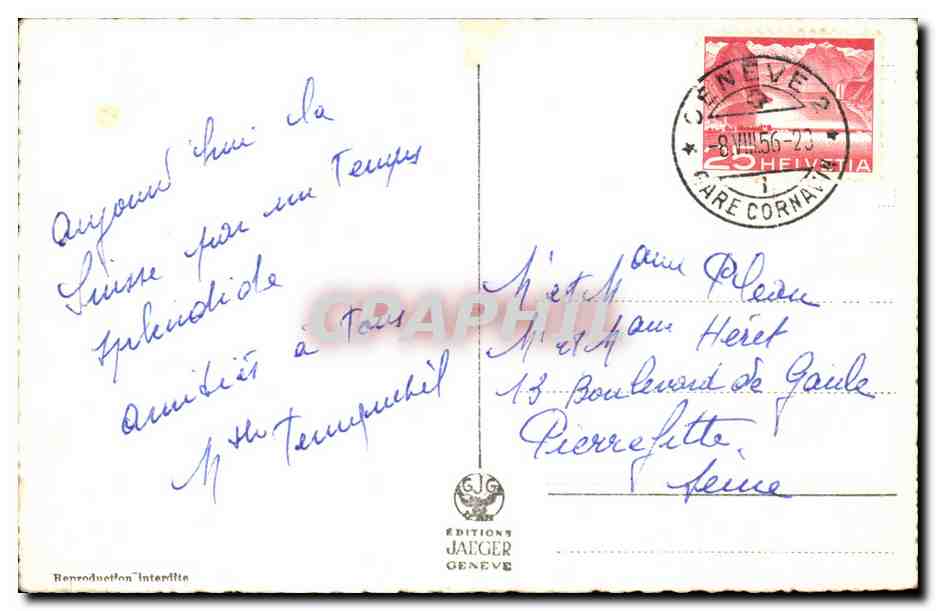 Aujourd'hui la
Suisse par un Temps
splendide
amitiés à tous
GENÈVE 2
-8.VIII.56-20
GARE CORNAVIN
25 HELVETIA
M et Mame
M et Mame Héret
13 Boulevard de Gaule
Pierrefitte
Seine
CPAPHIL
GJG
ÉDITIONS
JAEGER
GENEVE
Reproduction interdite